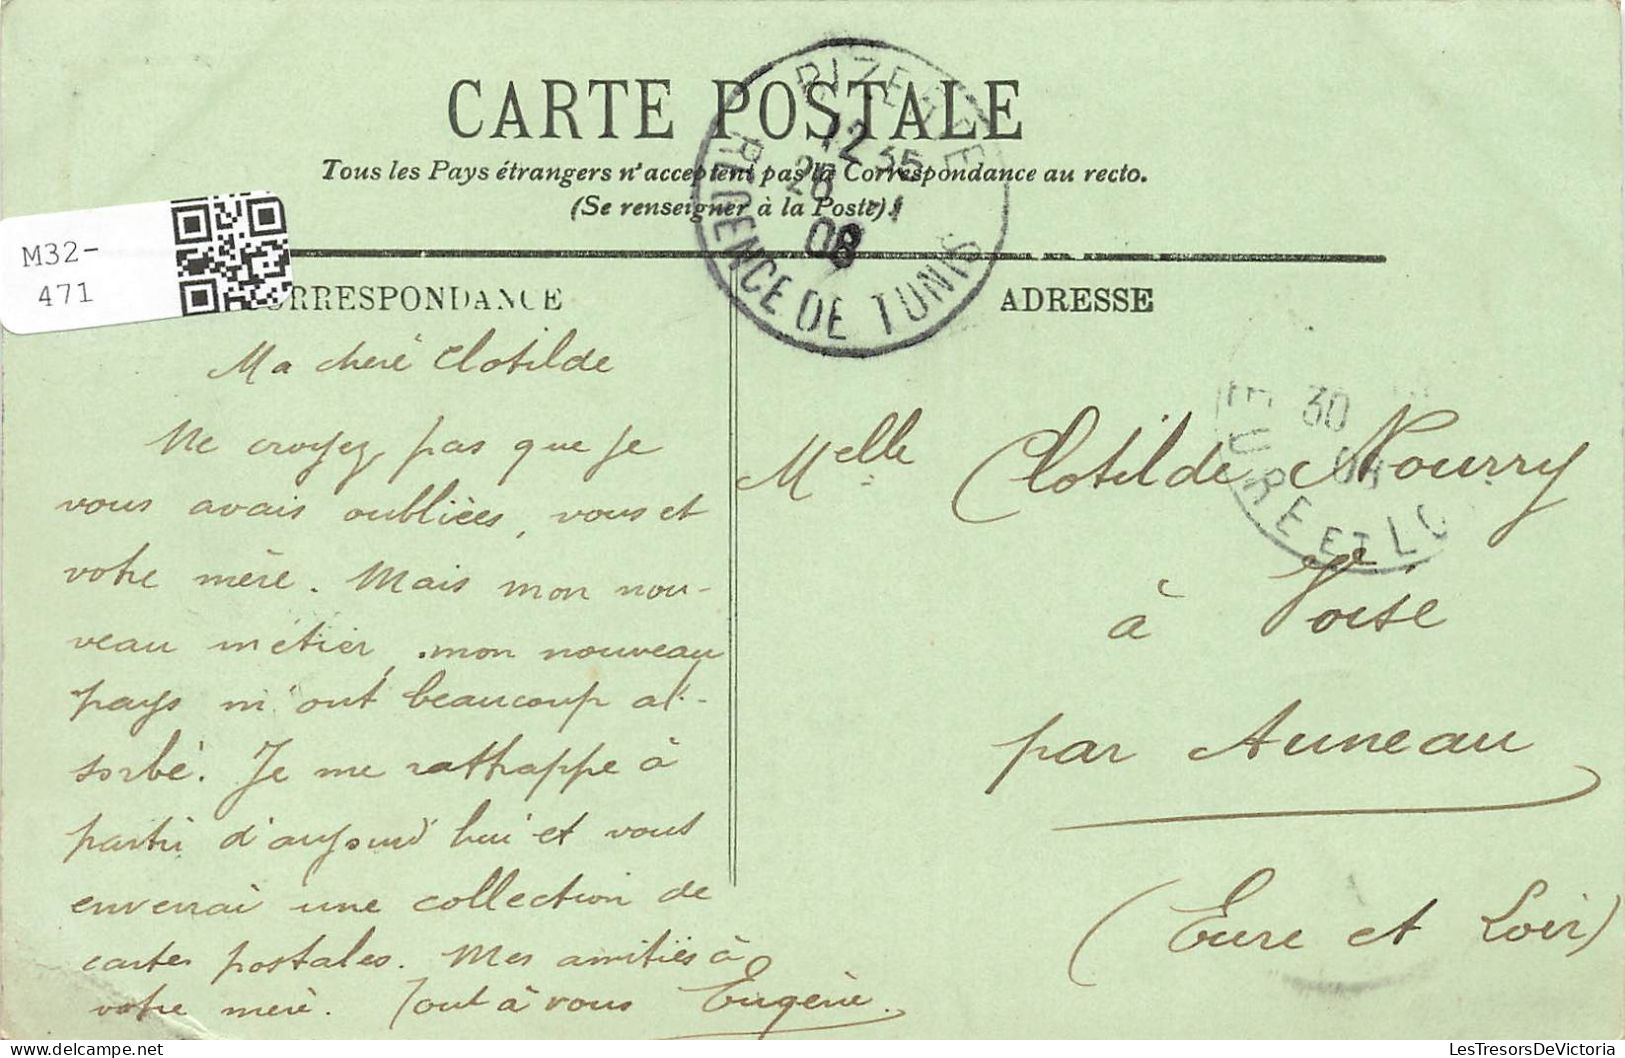 CARTE POSTALE
Tous les Pays étrangers n'acceptent pas la Correspondance au recto.
(Se renseigner à la Poste).
BIZERTE
12 35
26 -1
08
REGENCE DE TUNIS
M32-
471
CORRESPONDANCE
ADRESSE
Ma cheré Clotilde
Ne croyez pas que je
vous avais oubliées, vous et
votre mère. Mais mon nou-
veau métier, mon nouveau
pays m'ont beaucoup ab-
sorbé. Je me rattrappe à
partir d'aujourd'hui et vous
enverrai une collection de
cartes postales. Mes amitiés à
votre mère. Tout à vous Eugène.
30
08
EURE ET LO
Melle Clotilde Nourry
à
par Auneau
(Eure et Loir)
LesTresorsDeVictoria